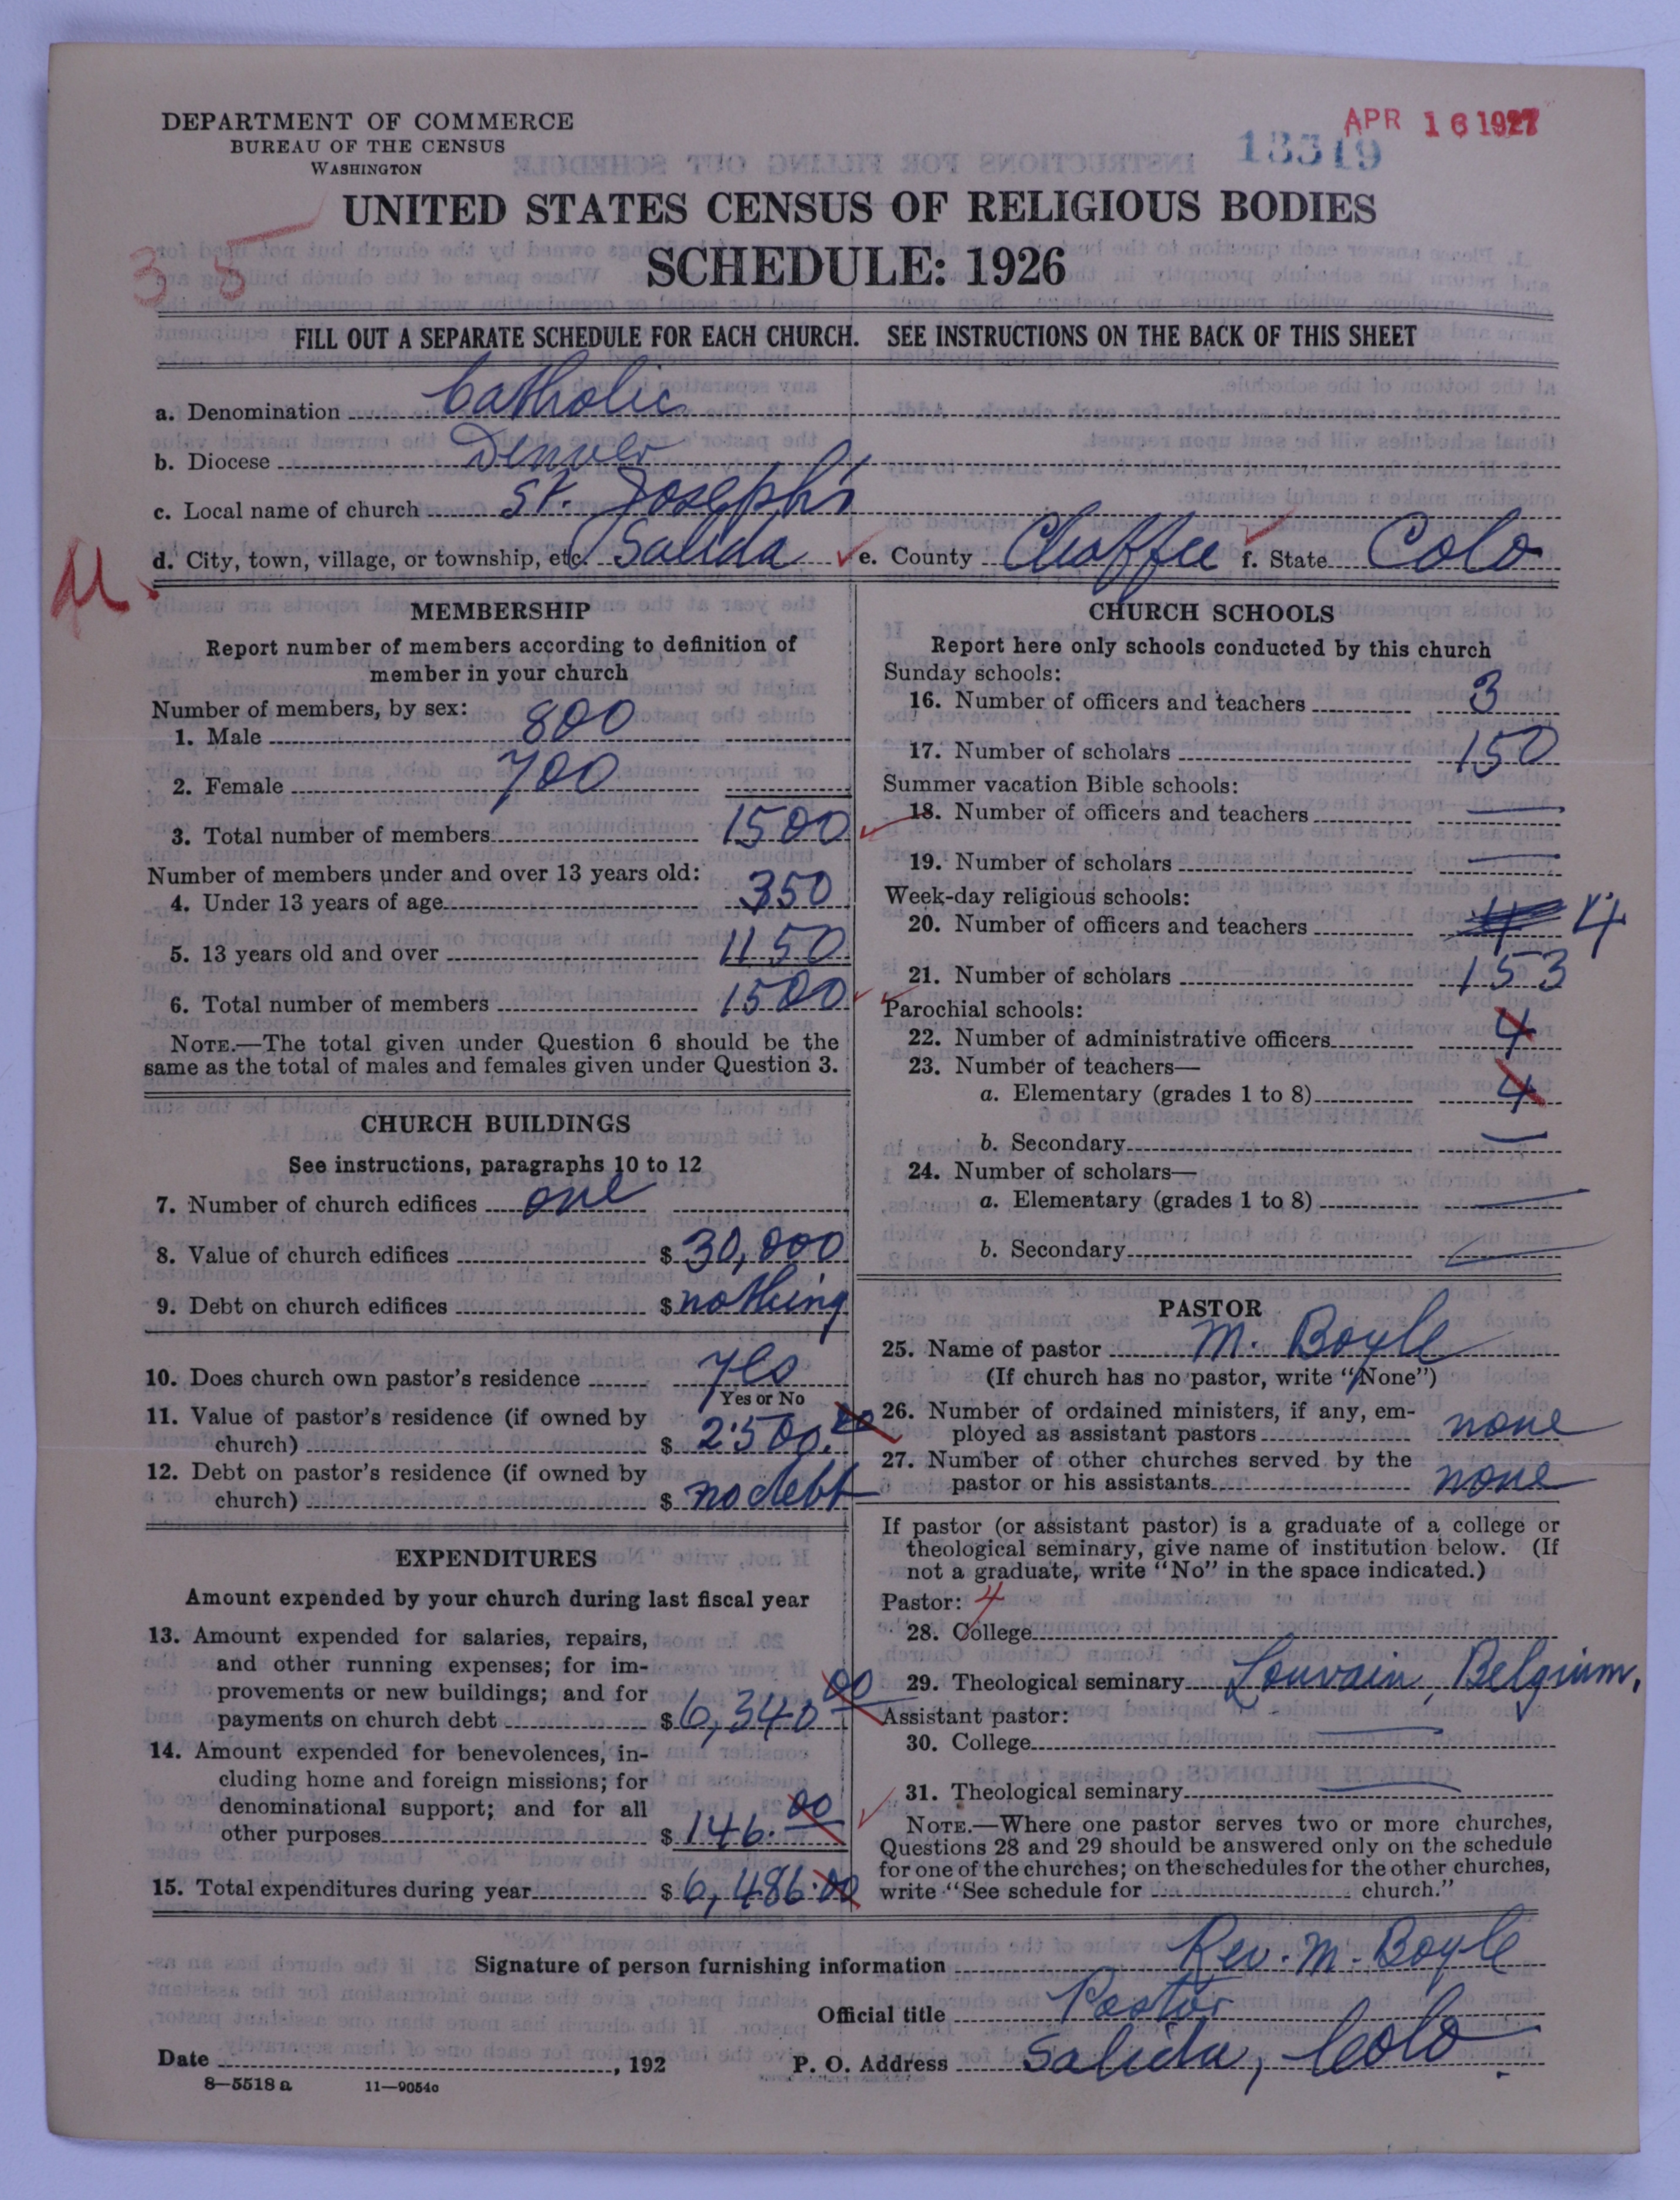 DEPARTMENT OF COMMERCE
BUREAU OF THE CENSUS
WASHINGTON
APR 16 1927
13319
UNITED STATES CENSUS OF RELIGIOUS BODIES
SCHEDULE: 1926
35
FILL OUT A SEPARATE SCHEDULE FOR EACH CHURCH. SEE INSTRUCTIONS ON THE BACK OF THIS SHEET
a. Denomination Catholic
b. Diocese Denver
c. Local name of church St. Joseph's
d. City, town, village, or township, etc. Salida e. County Chaffee f. State Colo
MEMBERSHIP
Report number of members according to definition of
member in your church
Number of members, by sex:
1. Male 800
2. Female 700
3. Total number of members 1500
Number of members under and over 13 years old:
4. Under 13 years of age 350
5. 13 years old and over 1150
6. Total number of members 1500
NOTE.—The total given under Question 6 should be the
same as the total of males and females given under Question 3.
CHURCH BUILDINGS
See instructions, paragraphs 10 to 12
7. Number of church edifices one
8. Value of church edifices $ 30,000
9. Debt on church edifices $ nothing
10. Does church own pastor's residence yes
Yes or No
11. Value of pastor's residence (if owned by
church) $ 2500.00
12. Debt on pastor's residence (if owned by
church) $ no debt
EXPENDITURES
Amount expended by your church during last fiscal year
13. Amount expended for salaries, repairs,
and other running expenses; for im-
provements or new buildings; and for
payments on church debt $ 6,340 00
14. Amount expended for benevolences, in-
cluding home and foreign missions; for
denominational support; and for all
other purposes $ 146.00
15. Total expenditures during year $ 6,486.00
CHURCH SCHOOLS
Report here only schools conducted by this church
Sunday schools:
16. Number of officers and teachers 3
17. Number of scholars 150
Summer vacation Bible schools:
18. Number of officers and teachers —
19. Number of scholars —
Week-day religious schools:
20. Number of officers and teachers 4 4
21. Number of scholars 153
Parochial schools:
22. Number of administrative officers 4
23. Number of teachers—
a. Elementary (grades 1 to 8) 4
b. Secondary —
24. Number of scholars—
a. Elementary (grades 1 to 8) —
b. Secondary —
PASTOR
25. Name of pastor M. Boyle
(If church has no pastor, write "None")
26. Number of ordained ministers, if any, em-
ployed as assistant pastors none
27. Number of other churches served by the
pastor or his assistants none
If pastor (or assistant pastor) is a graduate of a college or
theological seminary, give name of institution below. (If
not a graduate, write "No" in the space indicated.)
Pastor: 4
28. College
29. Theological seminary Louvain, Belgium.
Assistant pastor:
30. College —
31. Theological seminary —
NOTE.—Where one pastor serves two or more churches,
Questions 28 and 29 should be answered only on the schedule
for one of the churches; on the schedules for the other churches,
write "See schedule for church."
Signature of person furnishing information Rev. M. Boyle
Official title Pastor
Date , 192 P. O. Address Salida, Colo.
8—5518 a 11—9054c